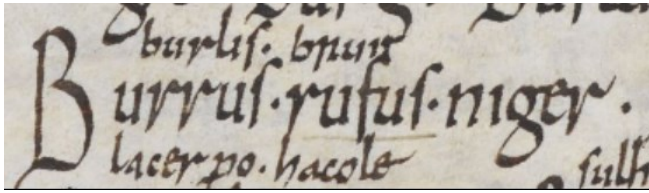 burlis. brun
Burrus. rufus. niger.
lacerpo. hacole